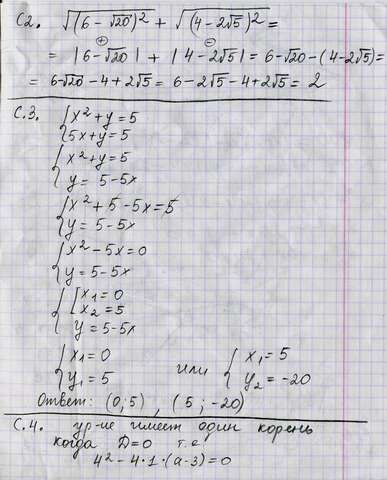 С2. √(6-√20)² + √(4-2√5)² =
= |6-√20| + |4-2√5| = 6-√20-(4-2√5)=
⊕ ⊖
= 6-√20-4+2√5 = 6-2√5-4+2√5 = 2
С.3. { x²+y=5
5x+y=5
{ x²+y=5
y= 5-5x
{ x²+5-5x=5
y= 5-5x
{ x²-5x=0
y=5-5x
{ [ x₁=0
x₂=5
y=5-5x
{ x₁=0 или { x₁=5
y₁=5 y₂=-20
Ответ: (0;5), (5;-20)
С.4. ур-ие имеет один корень
когда D=0 т.е
4²-4·1·(a-3)=0